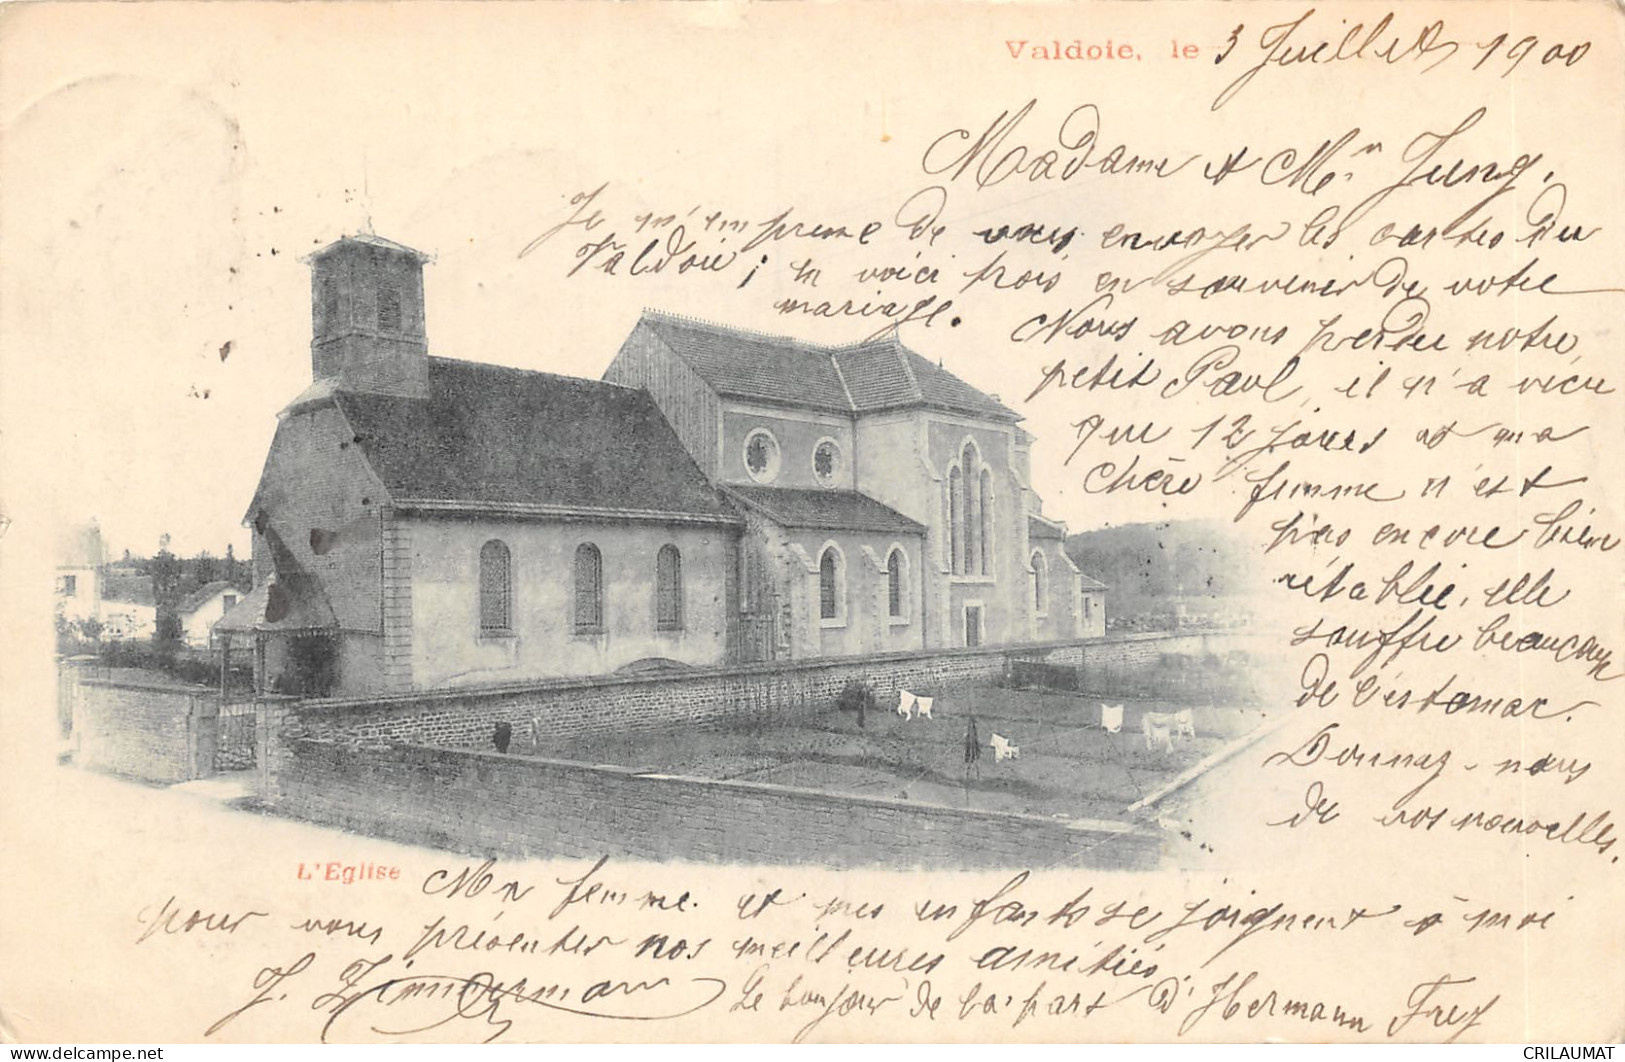 Valdoie, le 3 Juillet 1900
Madame et Mr Jung.
Je m'emprême de vous envoyer les cartes du
Valdoie; en voici trois en souvenir de votre
mariage.
Nous avons perdu notre
petit Paul, il n'a vécu
que 12 jours et ma
chère femme n'est
pas encore bien
rétablie, elle
souffre beaucoup
de l'estomac.
Donnez-nous
de vos nouvelles.
L'Eglise
Ma femme. et mes enfants se joignent à moi
pour vous présenter nos meilleures amitiés
J. Zimmermann
Le bonjour de la part d'Hermann Frey
CRILAUMAT